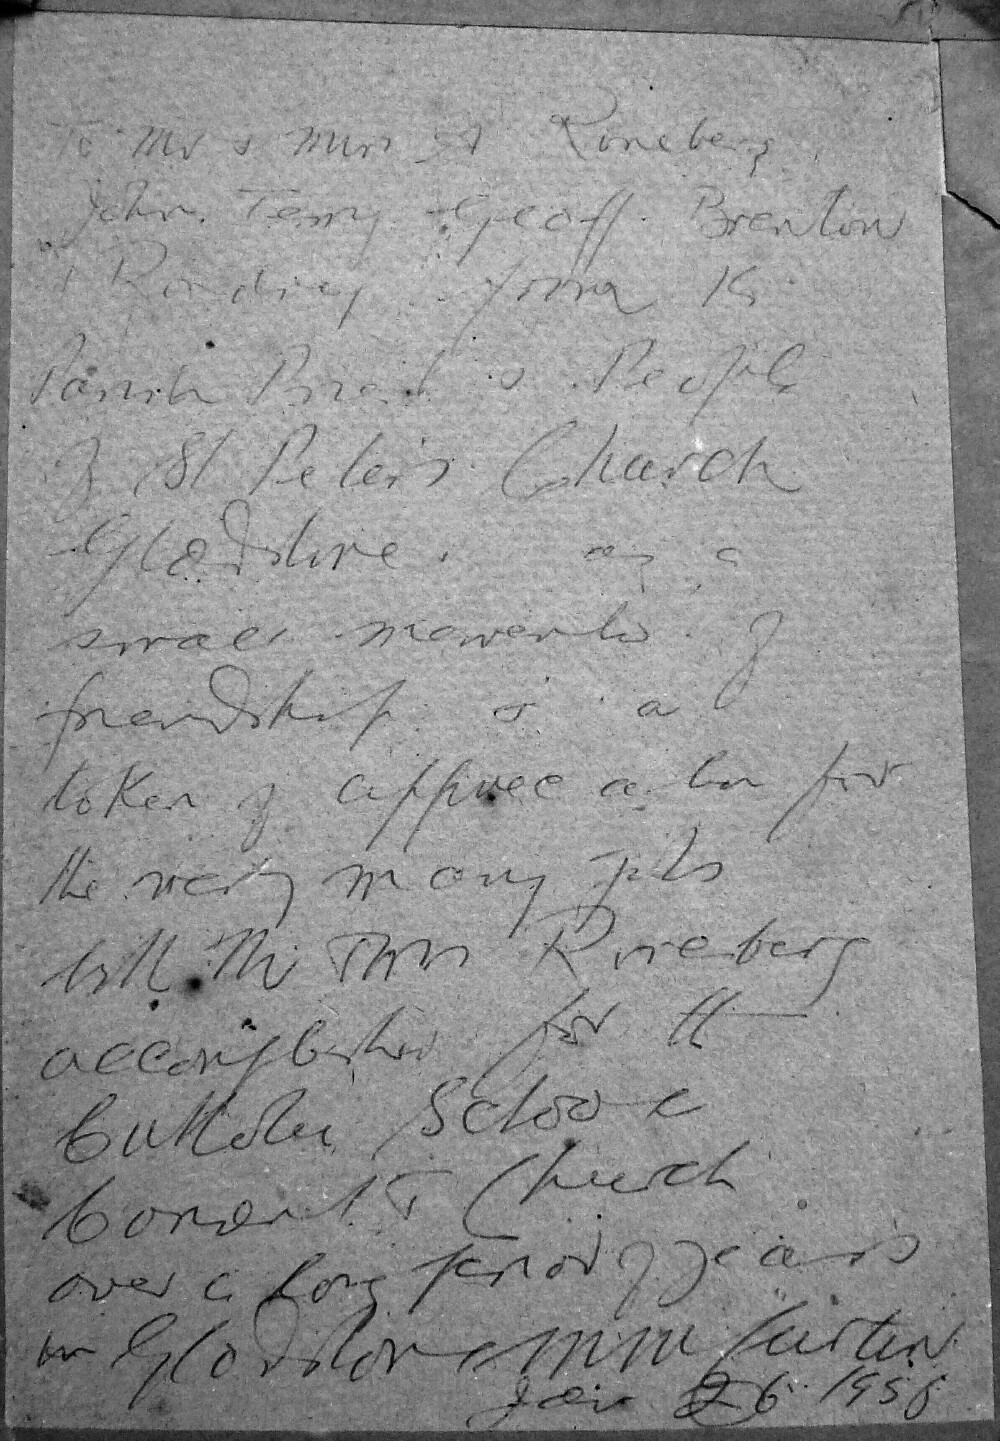 To Mr & Mrs A Roneberg,
John, Terry Geoff. Brenton
& Rodney from the
Parish Priest & People
of St Peters Church
Gladstone. as a
small momento of
friendship & a
token of appreciation for
the very many jobs
both Mr & Mrs Roneberg
accomplished for the
Catholic School
Convent & Church
over a long period of years
in Gladstone MM
Jan 26 1958